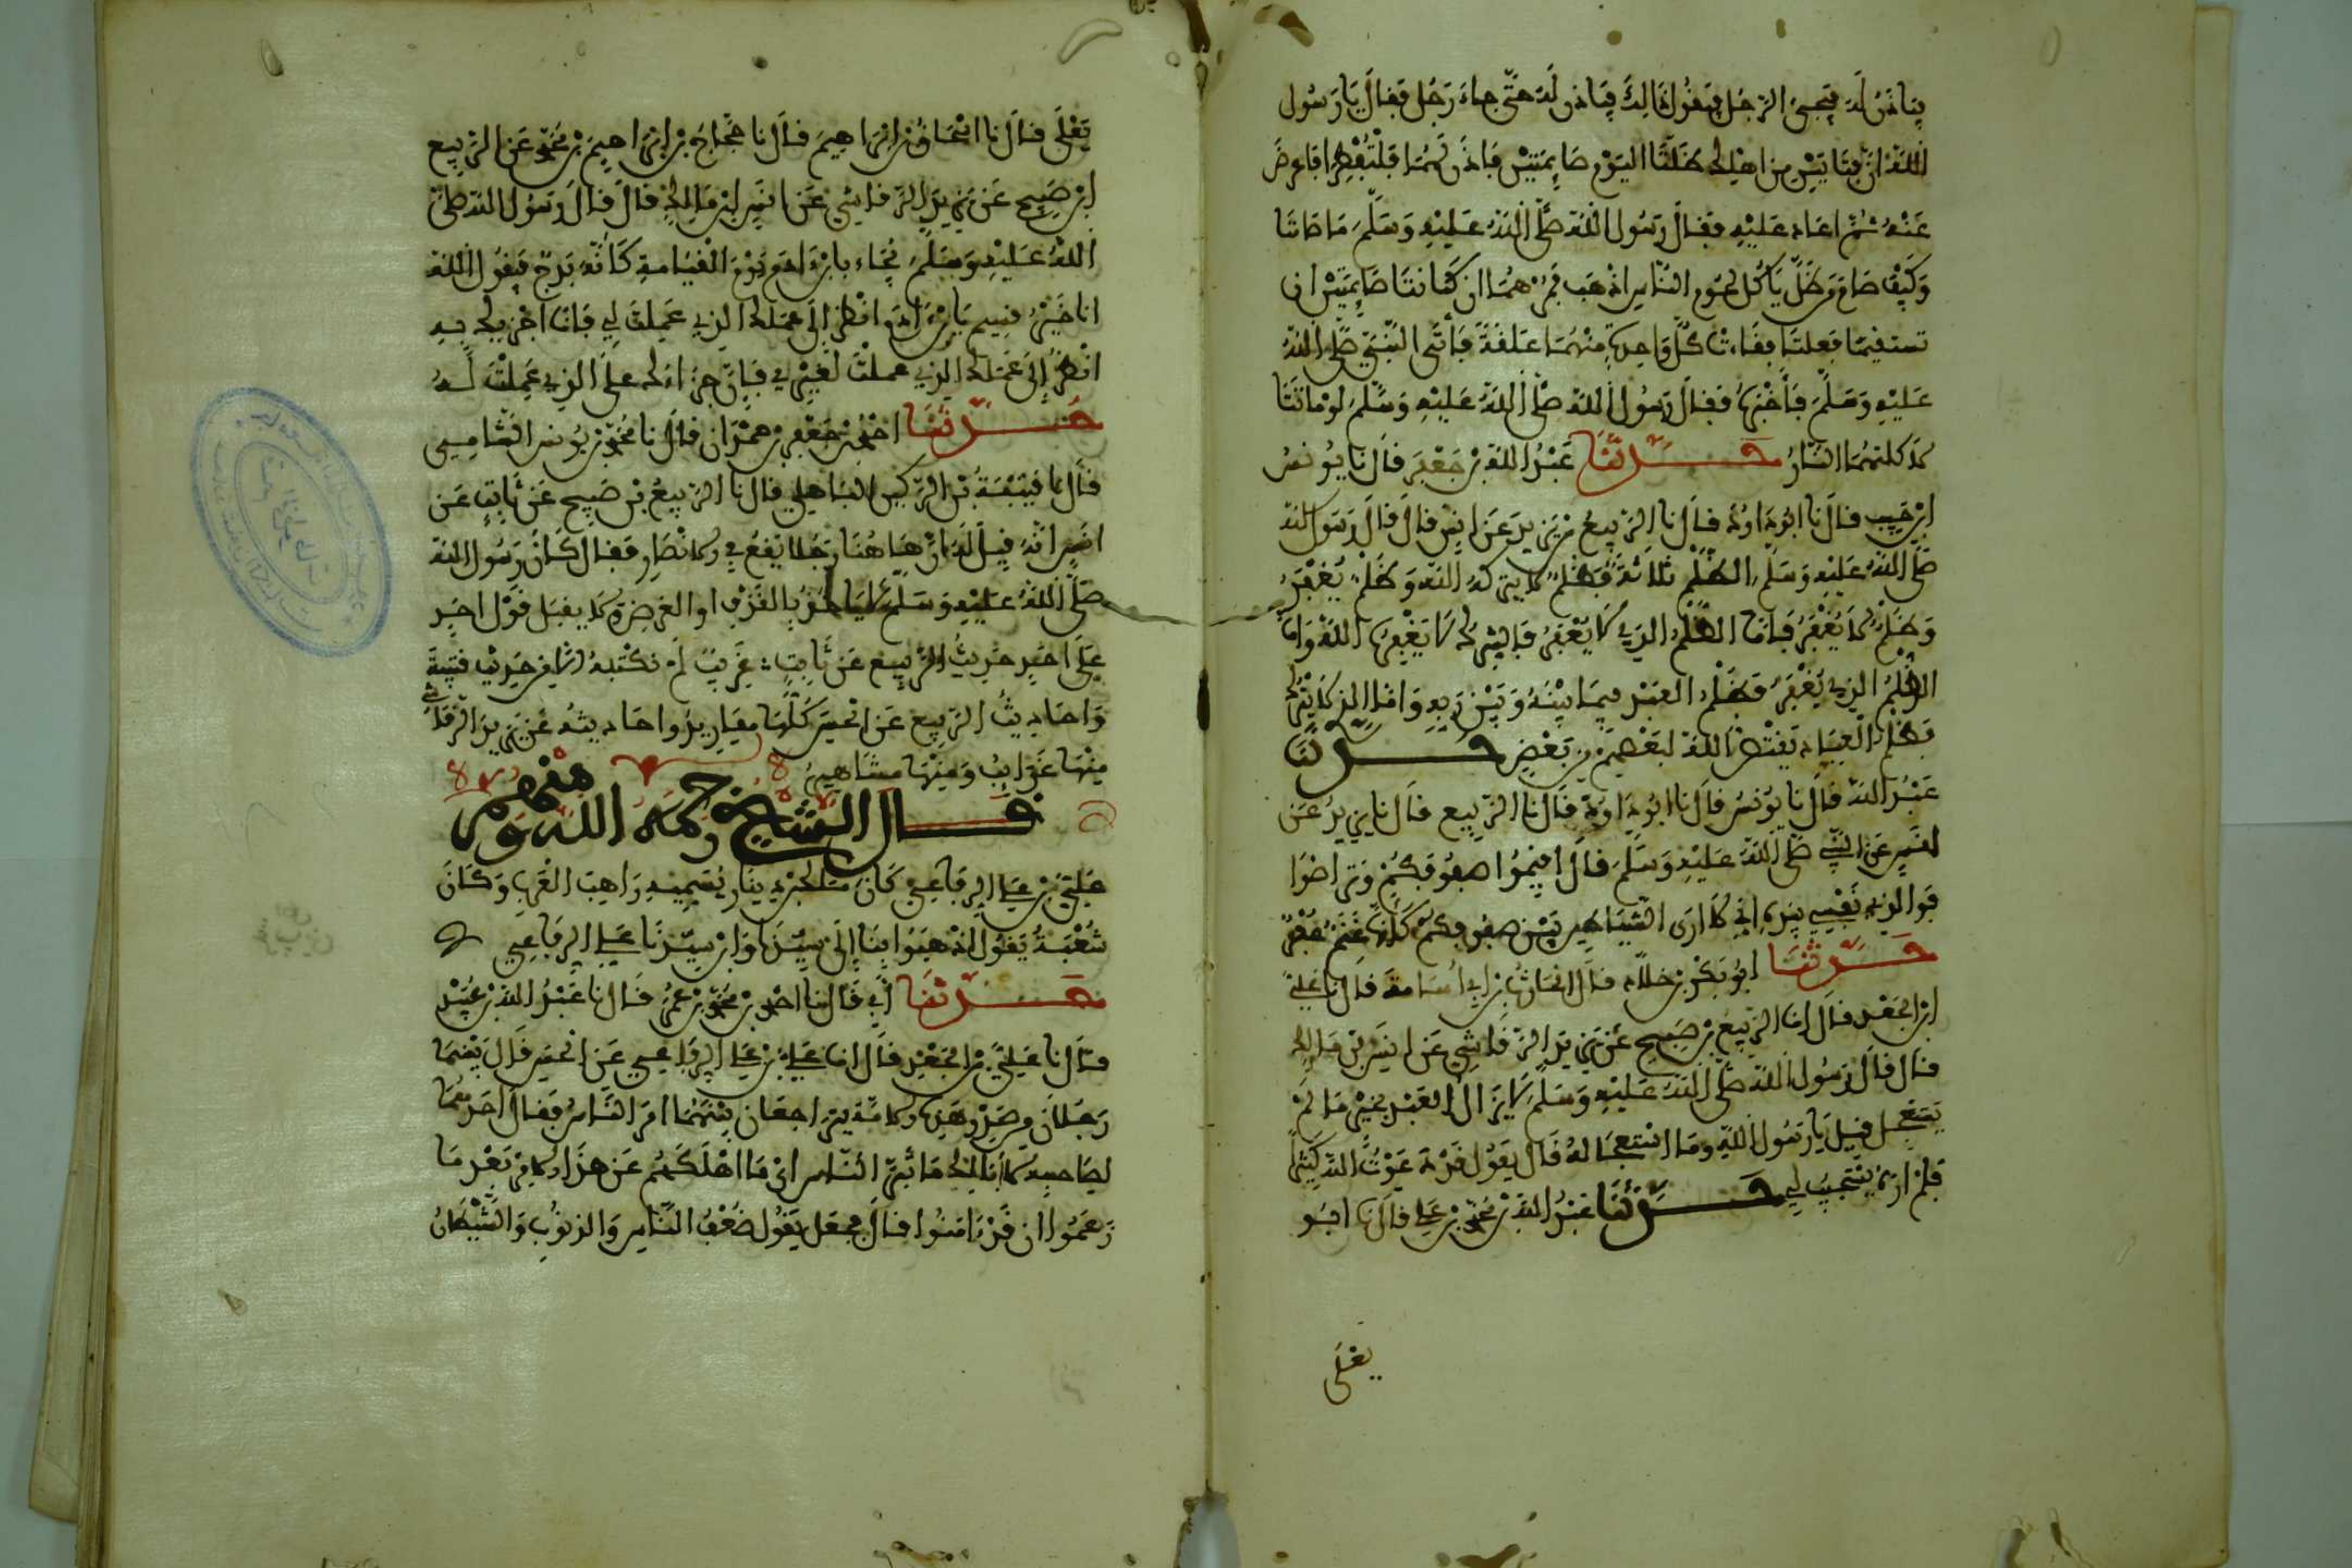 فيأذن له فيجيء الرجل فيقول ذالك فيأذن له حتى جاء رجل فقال يا رسول
الله إن فتاتين من أهلك ظلتا اليوم صايمتين فاذن لهما فلتفطرا فاعرض
عنه ثم أعاد عليه فقال رسول الله صلى الله عليه وسلم ما صامتا
وكيف صام من ظل يأكل لحوم الناس اذهب فمرهما ان كانتا صايمتين ان
تستقيئا ففعلتا فقاءت كل واحدة منهما علقة فأتى النبي صلى الله
عليه وسلم فأخبره فقال رسول الله صلى الله عليه وسلم لو ماتتا
لأكلتهما النار حدثنا عبد الله بن جعفر قال نا يونس
ابن حبيب قال نا ابو داود قال نا الربيع بن يزيد عن انس قال قال رسول الله
صلى الله عليه وسلم الظلم ثلاثة فظلم لا يتركه الله وظلم يغفر
وظلم لا يغفر فاما الظلم الذي لا يغفر فالشرك لا يغفره الله واما
الظلم الذي يغفر فظلم العبد فيما بينه وبين ربه واما الذي لا يترك
فظلم العباد يقتص الله لبعضهم من بعض حدثنا
عبد الله قال نا يونس قال نا ابو داود قال نا الربيع قال نا يزيد عن
انس عن النبي صلى الله عليه وسلم قال اقيموا صفوفكم وتراصوا
فوالذي نفسي بيده إني لأرى الشياطين بين صفوفكم كأنها غنم عفر
حدثنا ابو بكر بن خلاد قال نا الحارث بن أبي أسامة قال نا علي
ابن الجعد قال انا الربيع بن صبيح عن يزيد الرقاشي عن انس بن مالك
قال قال رسول الله صلى الله عليه وسلم لا يزال العبد بخير ما لم
يستعجل قيل يا رسول الله وما استعجاله قال يقول قد دعوت الله كثيرا
فلم اره يستجيب لي حدثنا عبد الله بن محمد بن علي قال نا ابو
يعلى
يعلى قال نا اسحاق بن ابراهيم قال نا حجاج بن ابراهيم بن محمد عن الربيع
ابن صبيح عن يزيد الرقاشي عن انس بن مالك قال قال رسول الله صلى
الله عليه وسلم يجاء بابن ادم يوم القيامة كأنه بذج فيقول الله
انا خير قسيم يا بن ادم انظر إلى عملك الذي عملت لي فانا اجزيك به
انظر إلى عملك الذي عملت لغيري فإن جزاءك على الذي عملت له
حدثنا احمد بن جعفر بن حمدان قال نا محمد بن يونس الشامي
قال نا قتيبة بن الركين الباهلي قال نا الربيع بن صبيح عن ثابت عن
انس انه قيل له ان هاهنا رجلا يقع في الانصار فقال كان رسول الله
صلى الله عليه وسلم لا ياخذ بالقرف او القرصة ولا يقبل قول احد
على احد حديث الربيع عن ثابت غريب لم نكتبه الا من حديث قتيبة
واحاديث الربيع عن الحسن كلها مقاريد واحاديثه عن يزيد الرقاشي
منها غرايب ومنها مشاهير
قال الشيخ رحمه الله ومنهم
علي بن علي الرفاعي كان مالك بن دينار يسميه راهب العرب وكان
شعبة يقول اذهبوا بنا إلى سيدنا وابن سيدنا علي الرفاعي
حدثنا أبي قال نا احمد بن محمد بن عمر قال نا عبد الله بن عبيد
قال نا علي بن الجعد قال انا علي بن علي الرفاعي عن الحسن قال بينما
رجلان من صدر هذه الامة يتراجعان بينهما امر الناس فقال أحدهما
لصاحبه لا أبا لك ما ثبر الناس اي ما اهلكهم عن هذا الامر بعد ما
زعموا ان قد ءامنوا قال فجعل يقول ضعف الناس والذنوب والشيطان